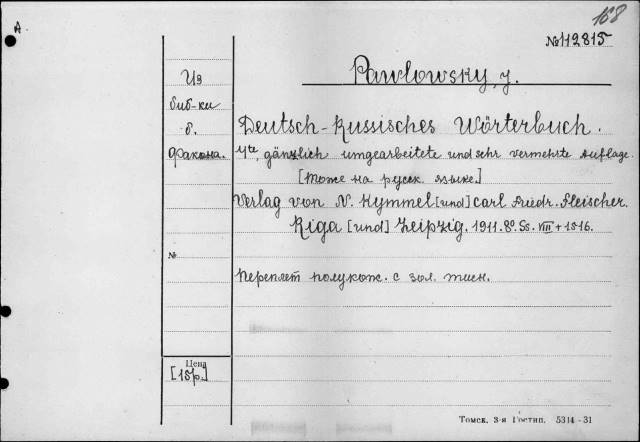 168
A
№ 112815
Из
биб-ки
б.
Факона.
Pawlowsky, J.
Deutsch-Russisches Wörterbuch.
4te, gänzlich umgearbeitete und sehr vermehrte Auflage.
[Тоже на русск. языке.]
Verlag von N. Kymmel [und] Carl Friedr. Fleischer.
Riga [und] Leipzig. 1911. 8º. Ss. VIII + 1516.
№
Переплет полукож. с зол. тисн.
Цена
[15р.]
Томск. 3-я Гостип. 5314-31